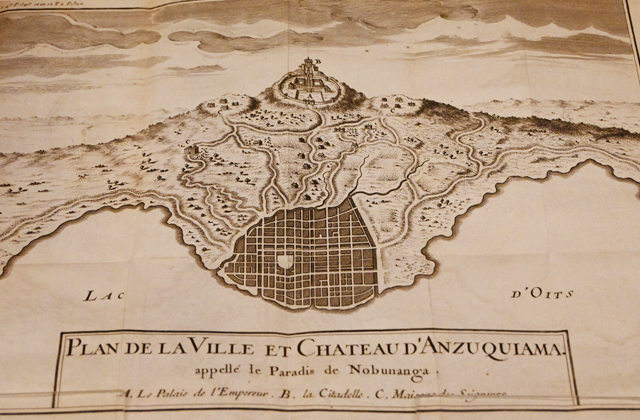 LAC D'OITS
PLAN DE LA VILLE ET CHATEAU D'ANZUQUIAMA.
appellé le Paradis de Nobunanga.
A. Le Palais de l'Empereur. B. la Citadelle. C. Maisons des Seigneurs